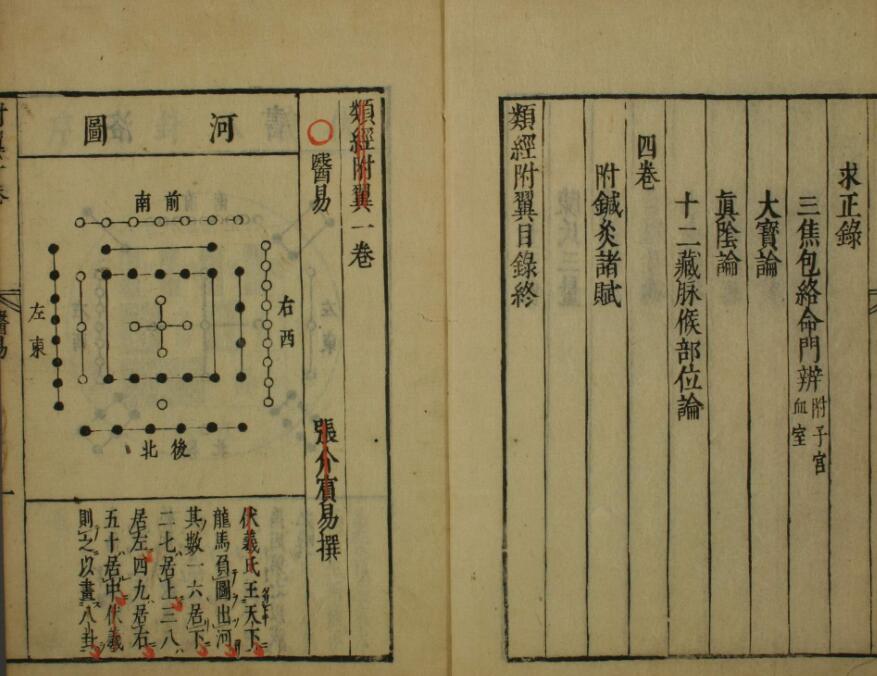 求正錄
三焦包絡命門辨 附子宮
血室
大寶論
眞陰論
十二藏脉候部位論
四卷
附鍼灸諸賦
類經附翼目錄終
類經附翼一卷
醫易
張介賓易撰
河圖
前南
右西
左東
後北
伏羲氏王天下
龍馬負圖出河
其數一六居下
二七居上三八
居左四九居右
五十居中伏羲
則之以畫八卦
醫易
一